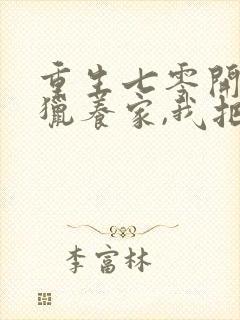 重生七零開
獵養家,我把
李富林